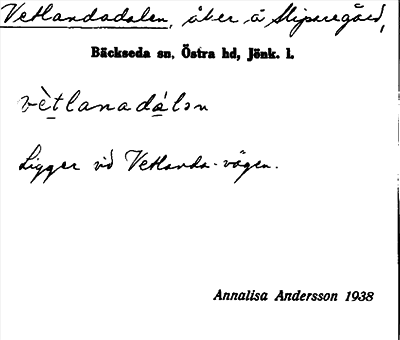 Vetlandadalen, åker å Slipsregård,
Bäckseda sn, Östra hd, Jönk. l.
vètlanadálən
Ligger vid Vetlanda-vägen.
Annalisa Andersson 1938